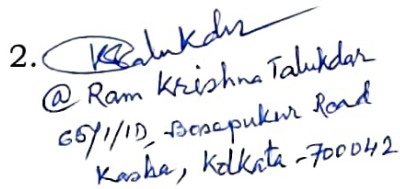 2. KTalukdar
@ Ram Krishna Talukdar
G5/1/1D, Bosepukur Road
Kasba, Kolkata - 700042